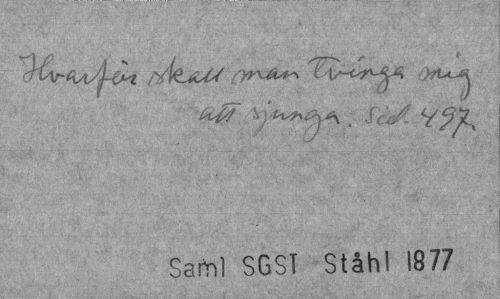 Hvarför skall man tvinga mig
att sjunga. Sid. 497.
Saml SGST Ståhl 1877